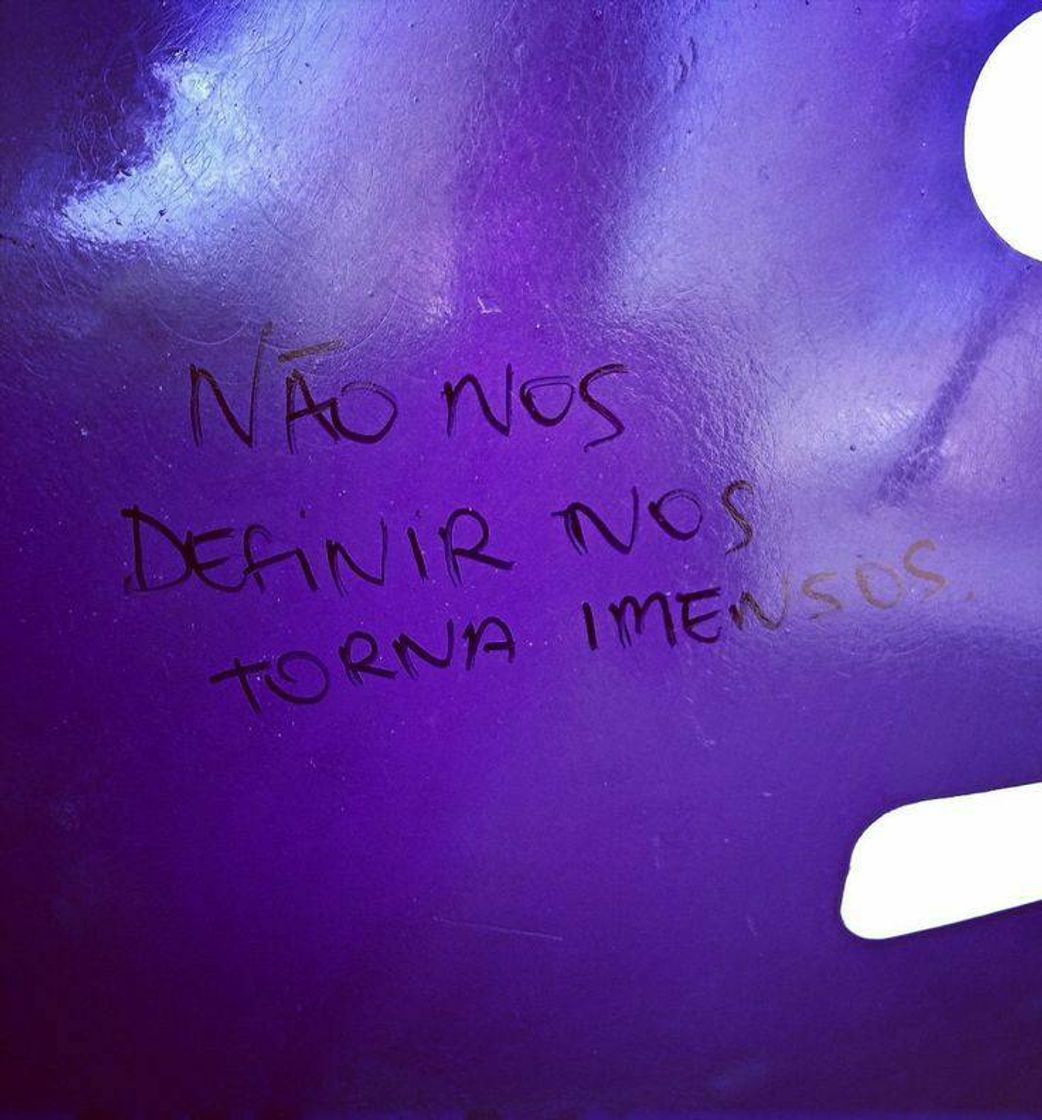 NÃO NOS
DEFINIR NOS
TORNA IMENSOS.